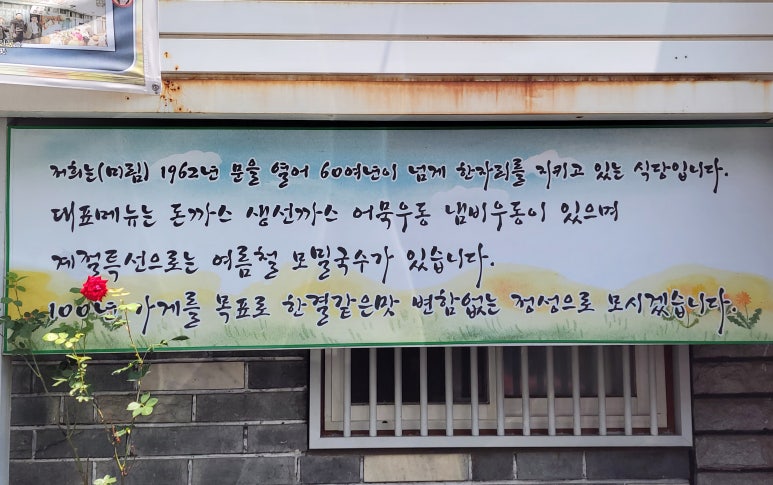 저희는(미림) 1962년 문을 열어 60여년이 넘게 한자리를 지키고 있는 식당입니다.
대표메뉴는 돈까스 생선까스 어묵우동 냄비우동이 있으며
계절특선으로는 여름철 모밀국수가 있습니다.
100년 가게를 목표로 한결같은맛 변함없는 정성으로 모시겠습니다.